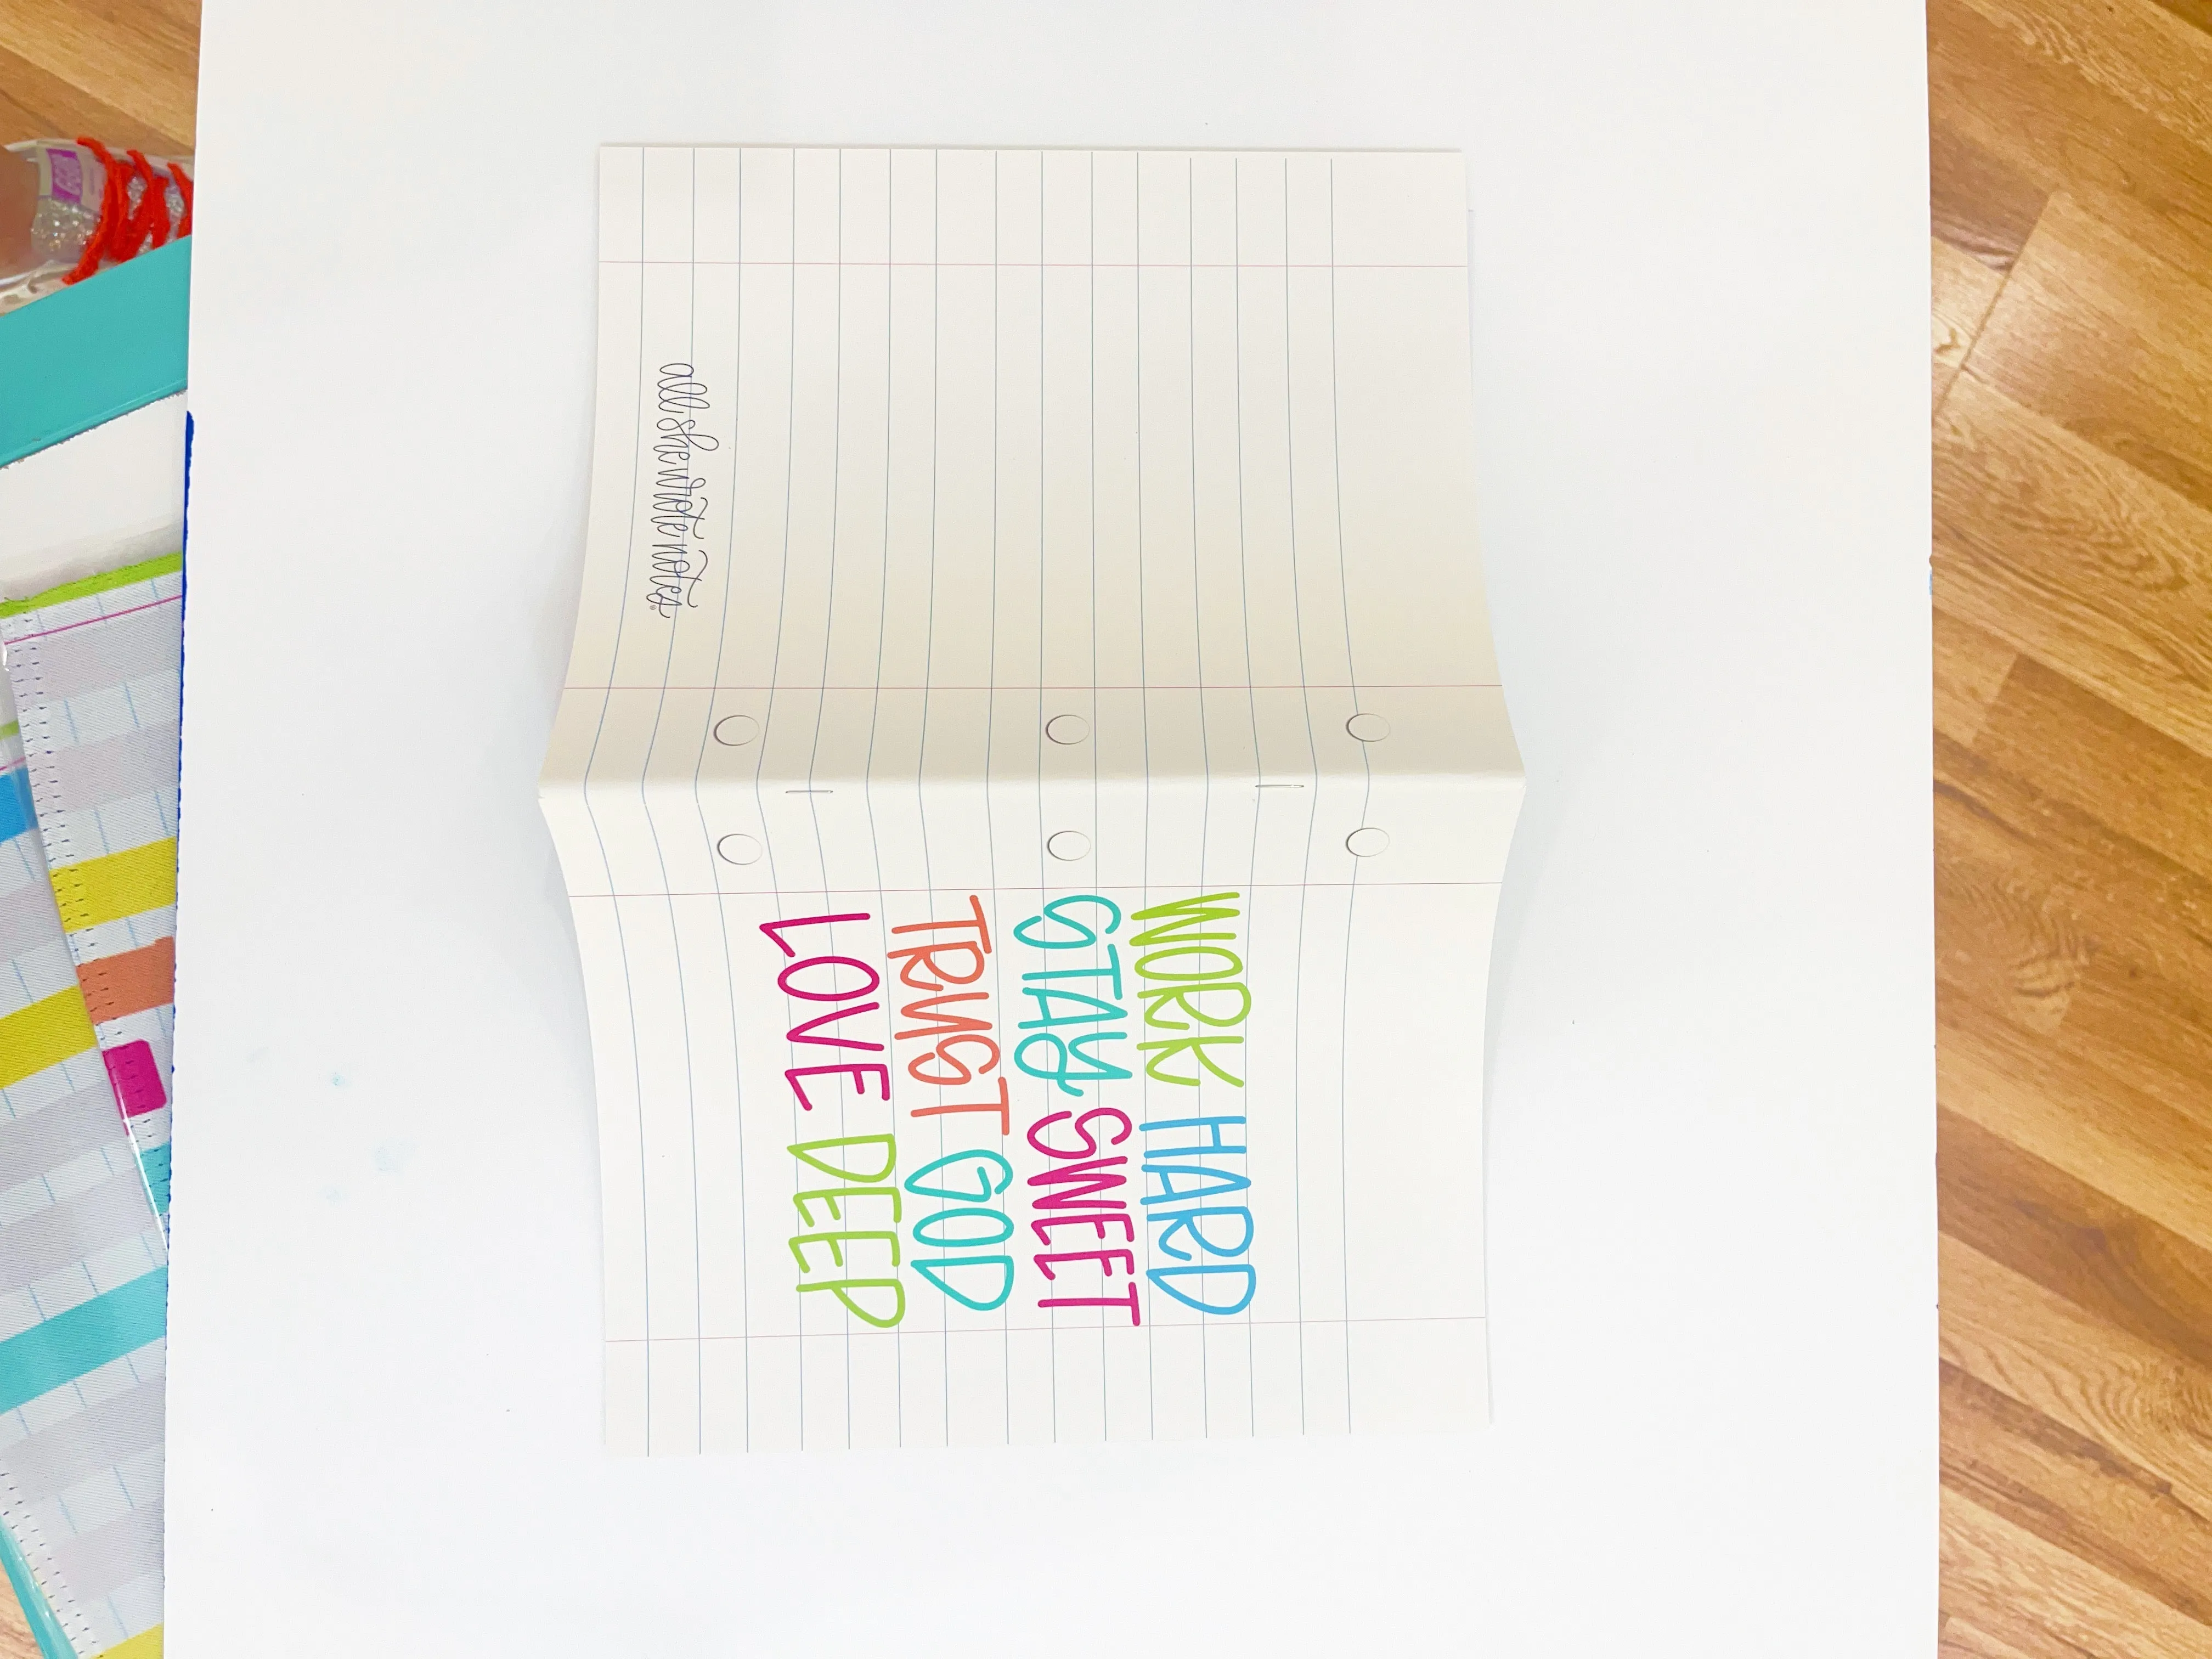 WORK HARD
STAY SWEET
TRUST GOD
LOVE DEEP
all she wrote notes